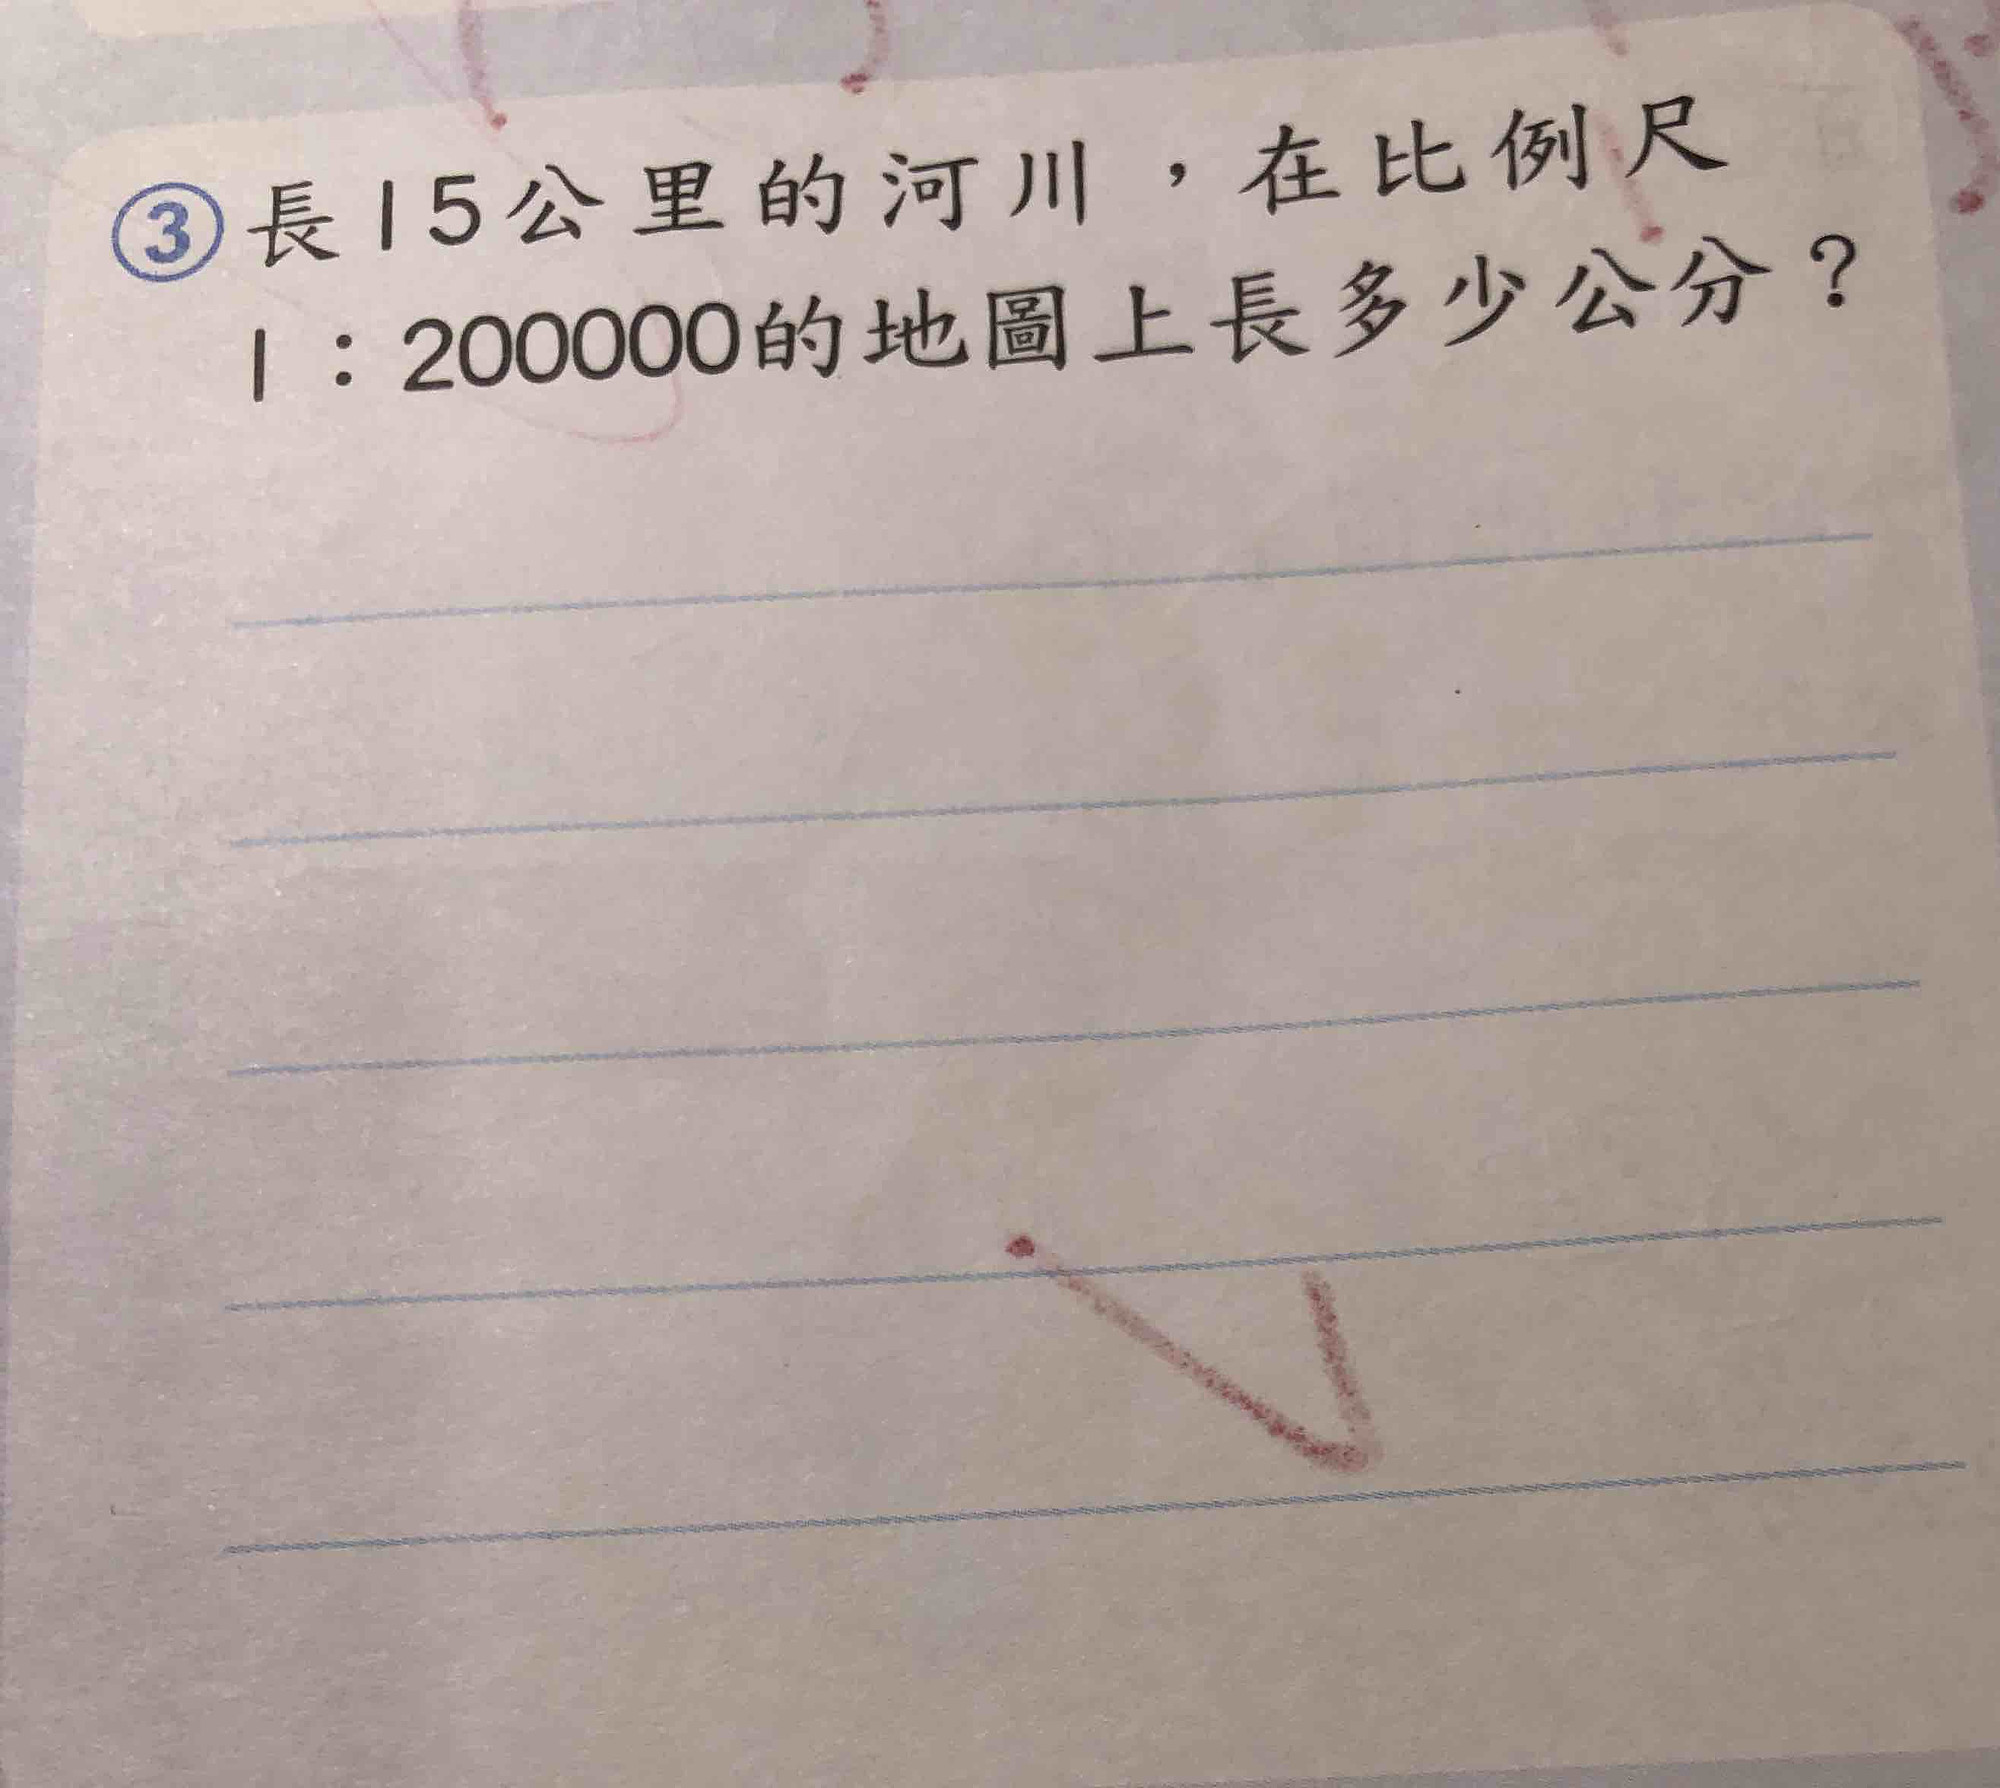 ③長15公里的河川，在比例尺
1：200000的地圖上長多少公分？